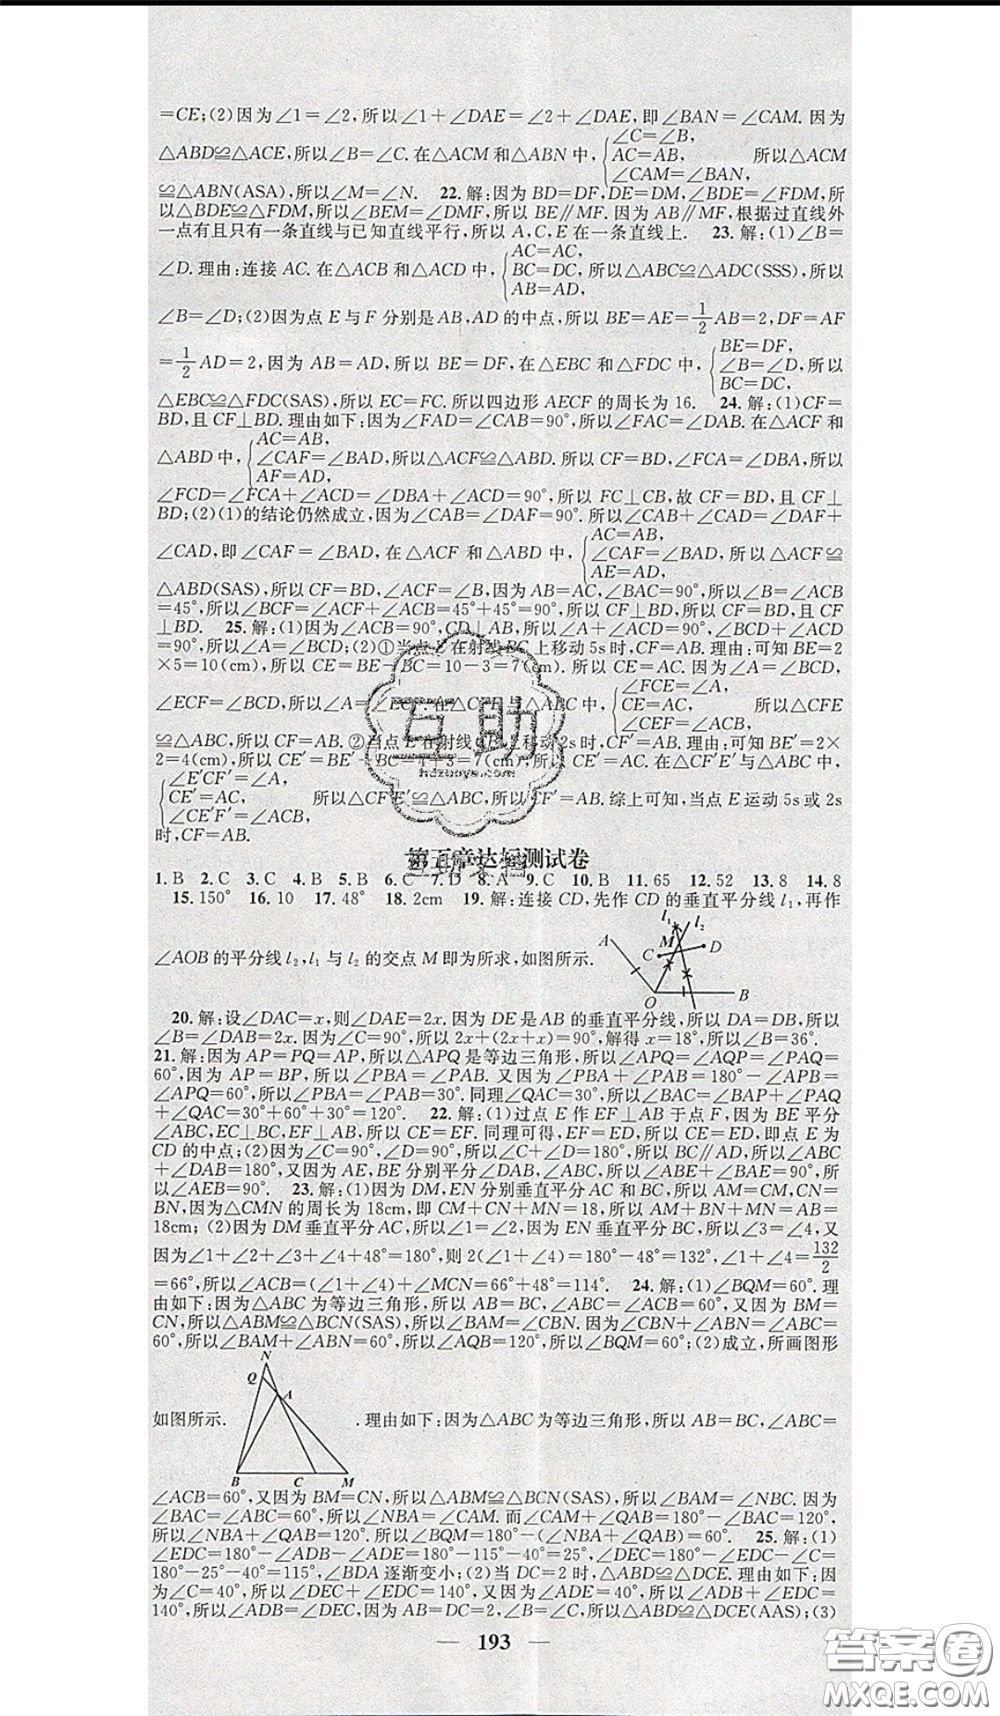 =CE;(2)因为∠1=∠2,所以∠1+∠DAE=∠2+∠DAE,即∠BAN=∠CAM.因为
△ABD≌△ACE,所以∠B=∠C.在△ACM和△ABN中,{∠C=∠B, AC=AB, ∠CAM=∠BAN, 所以△ACM
≌△ABN(ASA),所以∠M=∠N. 22.解:因为BD=DF,DE=DM,∠BDE=∠FDM,所
以△BDE≌△FDM,所以∠BEM=∠DMF,所以BE∥MF.因为AB∥MF,根据过直线外
一点有且只有一条直线与已知直线平行,所以A,C,E在一条直线上. 23.解:(1)∠B=
∠D.理由:连接AC.在△ACB和△ACD中,{AC=AC, BC=DC, AB=AD, 所以△ABC≌△ADC(SSS),所以
∠B=∠D;(2)因为点E与F分别是AB,AD的中点,所以BE=AE=1/2AB=2,DF=AF
=1/2AD=2,因为AB=AD,所以BE=DF,在△EBC和△FDC中,{BE=DF, ∠B=∠D, BC=DC, 所以
△EBC≌△FDC(SAS),所以EC=FC.所以四边形AECF的周长为16. 24.解:(1)CF=
BD,且CF⊥BD.理由如下:因为∠FAD=∠CAB=90°,所以∠FAC=∠DAB.在△ACF和
△ABD中,{AC=AB, ∠CAF=∠BAD, AF=AD, 所以△ACF≌△ABD.所以CF=BD,∠FCA=∠DBA,所以
∠FCD=∠FCA+∠ACD=∠DBA+∠ACD=90°,所以FC⊥CB,故CF=BD,且CF⊥
BD;(2)(1)的结论仍然成立,因为∠CAB=∠DAF=90°.所以∠CAB+∠CAD=∠DAF+
∠CAD,即∠CAF=∠BAD,在△ACF和△ABD中,{AC=AB, ∠CAF=∠BAD, AE=AD, 所以△ACF≌
△ABD(SAS),所以CF=BD,∠ACF=∠B,因为AB=AC,∠BAC=90°,所以∠B=∠ACB
=45°,所以∠BCF=∠ACF+∠ACB=45°+45°=90°,所以CF⊥BD,所以CF=BD,且CF
⊥BD. 25.解:(1)因为∠ACB=90°,CD⊥AB,所以∠A+∠ACD=90°,∠BCD+∠ACD=
90°,所以∠A=∠BCD;(2)①当点E在射线BC上移动5s时,CF=AB.理由:可知BE=2
×5=10(cm),所以CE=BE-BC=10-3=7(cm).所以CE=AC.因为∠A=∠BCD,
∠ECF=∠BCD,所以∠A=∠ECF.在△CFE与△ABC中,{∠FCE=∠A, CE=AC, ∠CEF=∠ACB, 所以△CFE
≌△ABC,所以CF=AB.②当点E在射线CB上移动2s时,CF′=AB.理由:可知BE′=2×
2=4(cm),所以CE′=BE′+BC=4+3=7(cm),所以CE′=AC.在△CF′E′与△ABC中,
{∠E′CF′=∠A, CE′=AC, ∠CE′F′=∠ACB, 所以△CF′E′≌△ABC,所以CF′=AB.综上可知,当点E运动5s或2s
时,CF=AB.
互助
hdzuoye.com
互助文档
第五章达标测试卷
1.B 2.C 3.C 4.B 5.B 6.C 7.D 8.A 9.C 10.B 11.65 12.52 13.8 14.8
15.150° 16.10 17.48° 18.2cm 19.解:连接CD,先作CD的垂直平分线l₁,再作
∠AOB的平分线l₂,l₁与l₂的交点M即为所求,如图所示.
l₁ l₂ A M C D O B
20.解:设∠DAC=x,则∠DAE=2x.因为DE是AB的垂直平分线,所以DA=DB,所以
∠B=∠DAB=2x.因为∠C=90°,所以2x+(2x+x)=90°,解得x=18°,所以∠B=36°.
21.解:因为AP=PQ=AP,所以△APQ是等边三角形,所以∠APQ=∠AQP=∠PAQ=
60°,因为AP=BP,所以∠PBA=∠PAB.又因为∠PBA+∠PAB=180°-∠APB=
∠APQ=60°,所以∠PBA=∠PAB=30°.同理∠QAC=30°.所以∠BAC=∠BAP+∠PAQ
+∠QAC=30°+60°+30°=120°. 22.解:(1)过点E作EF⊥AB于点F,因为BE平分
∠ABC,EC⊥BC,EF⊥AB,所以CE=EF.同理可得,EF=ED,所以CE=ED,即点E为
CD的中点;(2)因为∠C=90°,∠D=90°,所以∠C+∠D=180°,所以BC∥AD,所以∠ABC
+∠DAB=180°,又因为AE,BE分别平分∠DAB,∠ABC,所以∠ABE+∠BAE=90°,所
以∠AEB=90°. 23.解:(1)因为DM,EN分别垂直平分AC和BC,所以AM=CM,CN=
BN,因为△CMN的周长为18cm,即CM+CN+MN=18,所以AM+BN+MN=AB=
18cm;(2)因为DM垂直平分AC,所以∠1=∠2,因为EN垂直平分BC,所以∠3=∠4,又
因为∠1+∠2+∠3+∠4+48°=180°,则2(∠1+∠4)=180°-48°=132°,∠1+∠4=132/2
=66°,所以∠ACB=(∠1+∠4)+∠MCN=66°+48°=114°. 24.解:(1)∠BQM=60°.理
由如下:因为△ABC为等边三角形,所以AB=BC,∠ABC=∠ACB=60°,又因为BM=
CN,所以△ABM≌△BCN(SAS),所以∠BAM=∠CBN.因为∠CBN+∠ABN=∠ABC=
60°,所以∠BAM+∠ABN=60°,所以∠AQB=120°,所以∠BQM=60°;(2)成立,所画图形
N Q A B C M
如图所示. .理由如下:因为△ABC为等边三角形,所以AB=BC,∠ABC=
∠ACB=60°,又因为BM=CN,所以△ABM≌△BCN(SAS),所以∠BAM=∠NBC.因为
∠BAC=∠ABC=60°,所以∠NBA=∠CAM.而∠CAM+∠QAB=180°-∠BAC=120°,
所以∠NBA+∠QAB=120°.所以∠BQM=180°-(∠NBA+∠QAB)=60°. 25.解:(1)
∠EDC=180°-∠ADB-∠ADE=180°-115°-40°=25°,∠DEC=180°-∠EDC-∠C=
180°-25°-40°=115°,∠BDA逐渐变小;(2)当DC=2时,△ABD≌△DCE.理由如下:因
为∠C=40°,所以∠DEC+∠EDC=140°,又因为∠ADE=40°,所以∠ADB+∠EDC=
140°,所以∠ADB=∠DEC,因为AB=DC=2,∠B=∠C,所以△ABD≌△DCE(AAS);(3)
193
答案圈
MXQE.COM